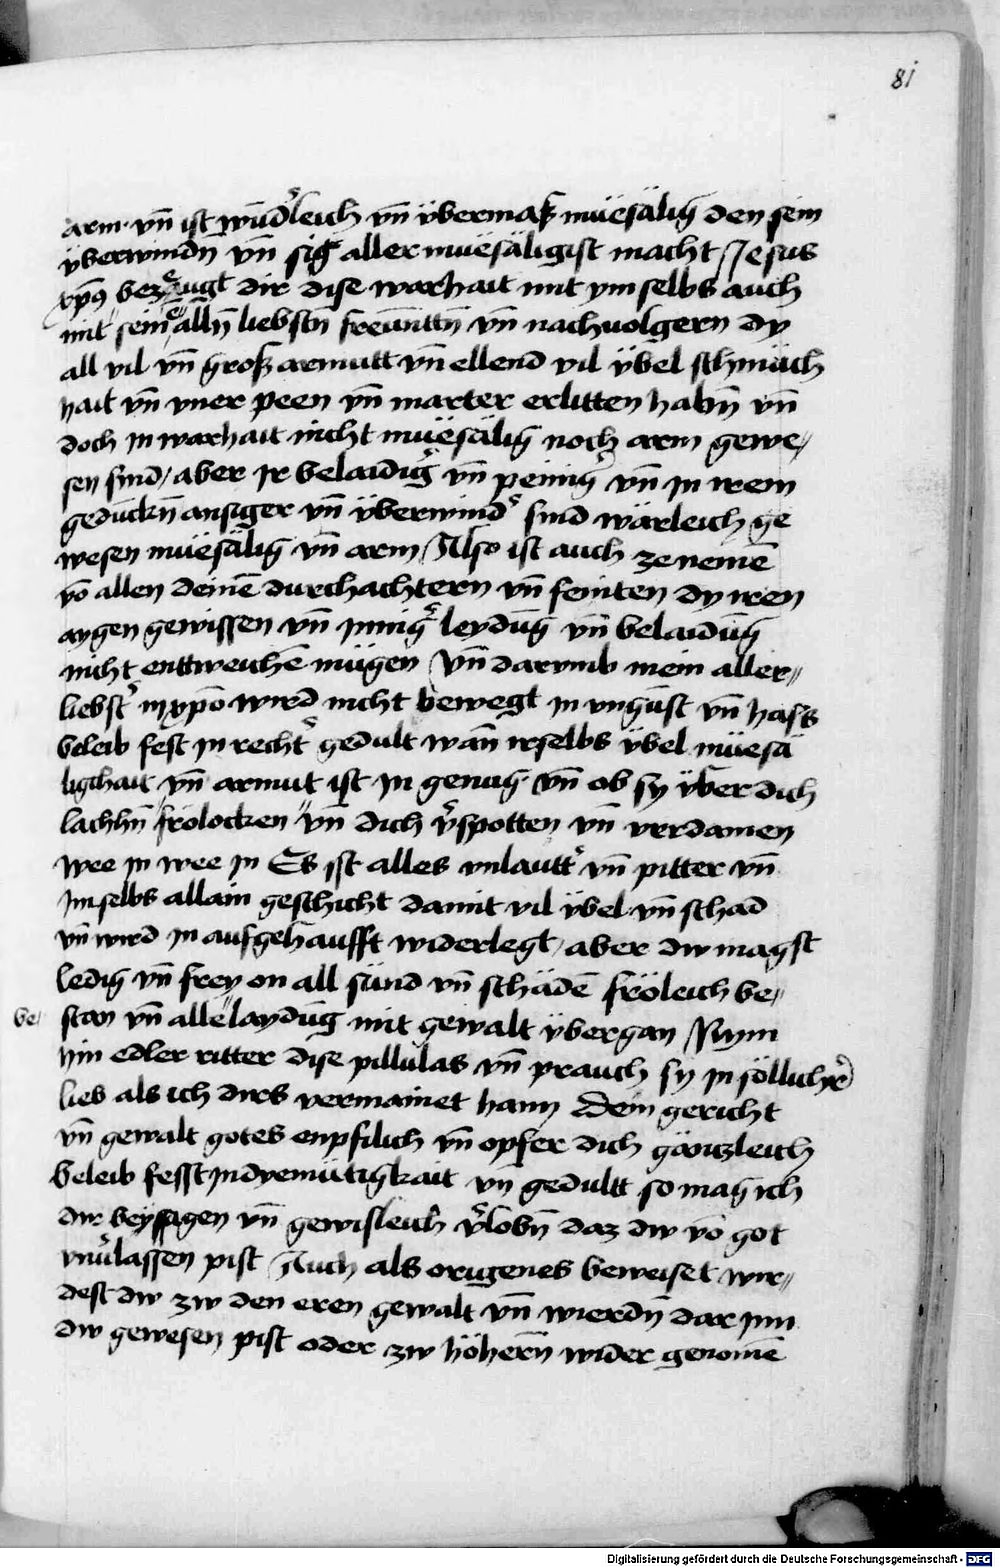 81
arm· vn̄ ist wūd̾leich vn̄ v̈bermaß müesälig den sein
v̈berwindn̄ vn̄ sig aller müesäligist macht / Jesus
xp̄s bezeugt dir dise warhait mit ym selbs auch
mit sein̄ alln̄ liebstn̄ freünttn̄ vn̄ nachuolgern dy
all vil vn̄ groß armutt vn̄ ellend vil v̈bel schmäch
hait vn̄ vner peen vn̄ marter erlitten habn̄ vn̄
doch in warhait nicht müesälig noch arm gewe⸗
sen sind / aber Ir belaidig̾ vn̄ peinig̾ vn̄ in irem
gedūckn̄ ansiger vn̄ v̈berwind̾ sind wärleich ge
wesen müesälig vn̄ arm / Also ist auch ze nemē
vō allen deinē durchachtern vn̄ feinten dy iren
aygen gewissen vn̄ innig̾ leydūg vn̄ belaidūg
nicht enttweichē mügen / Vn̄ darvmb mein aller⸗
liebst̾ in xp̄o wird nicht bewegt in vngunst vn̄ hass
beleib fest in recht̾ gedult wān irselbs v̈bel müesä
ligchait vn̄ armut ist in genug· vn̄ ob sy v̈ber dich
lachn̄ frölocken vn̄ dich v̾spotten vn̄ verdamen
wee in wee in Es ist alles vnlautt̾ vn̄ pitter vn̄
Im selbs allain geschicht damit vil v̈bel vn̄ schad
vn̄ wird in aufgehaufft widerlegt / aber dw magst
ledig vn̄ frey on all sünd vn̄ schädē fröleich be⸗
be⸗ stan vn̄ alle laydūg mit gewalt v̈bergan / Nym
hin edler ritter dise pillulas vn̄ prauch sy in söllicher
lieb als ich dirs vermainet hann Dem gericht
vn̄ gewalt gotes enpfilich vn̄ opfer dich gänczleich
beleib fesst in dyemütigkait vn̄ gedultt so mag ich
dir beysagen vn̄ gewisleich v̾lobn̄ daz dw vō got
vnu̾lassen pist / Auch als origenes beweiset wir⸗
dest dw zw den eren gewalt vn̄ wierdn̄ dar inn
dw gewesen pist oder zw höhern̄ wider genomē
Digitalisierung gefördert durch die Deutsche Forschungsgemeinschaft - DFG